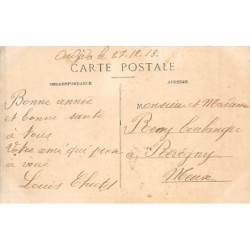 le 27.12.13.
CARTE POSTALE
CORRESPONDANCE
ADRESSE
Bonne année
et bonne santé
à Vous
Votre ami qui pense
à vous
Louis
monsieur et Madame
Remy Boulanger
à Revigny
Meuse